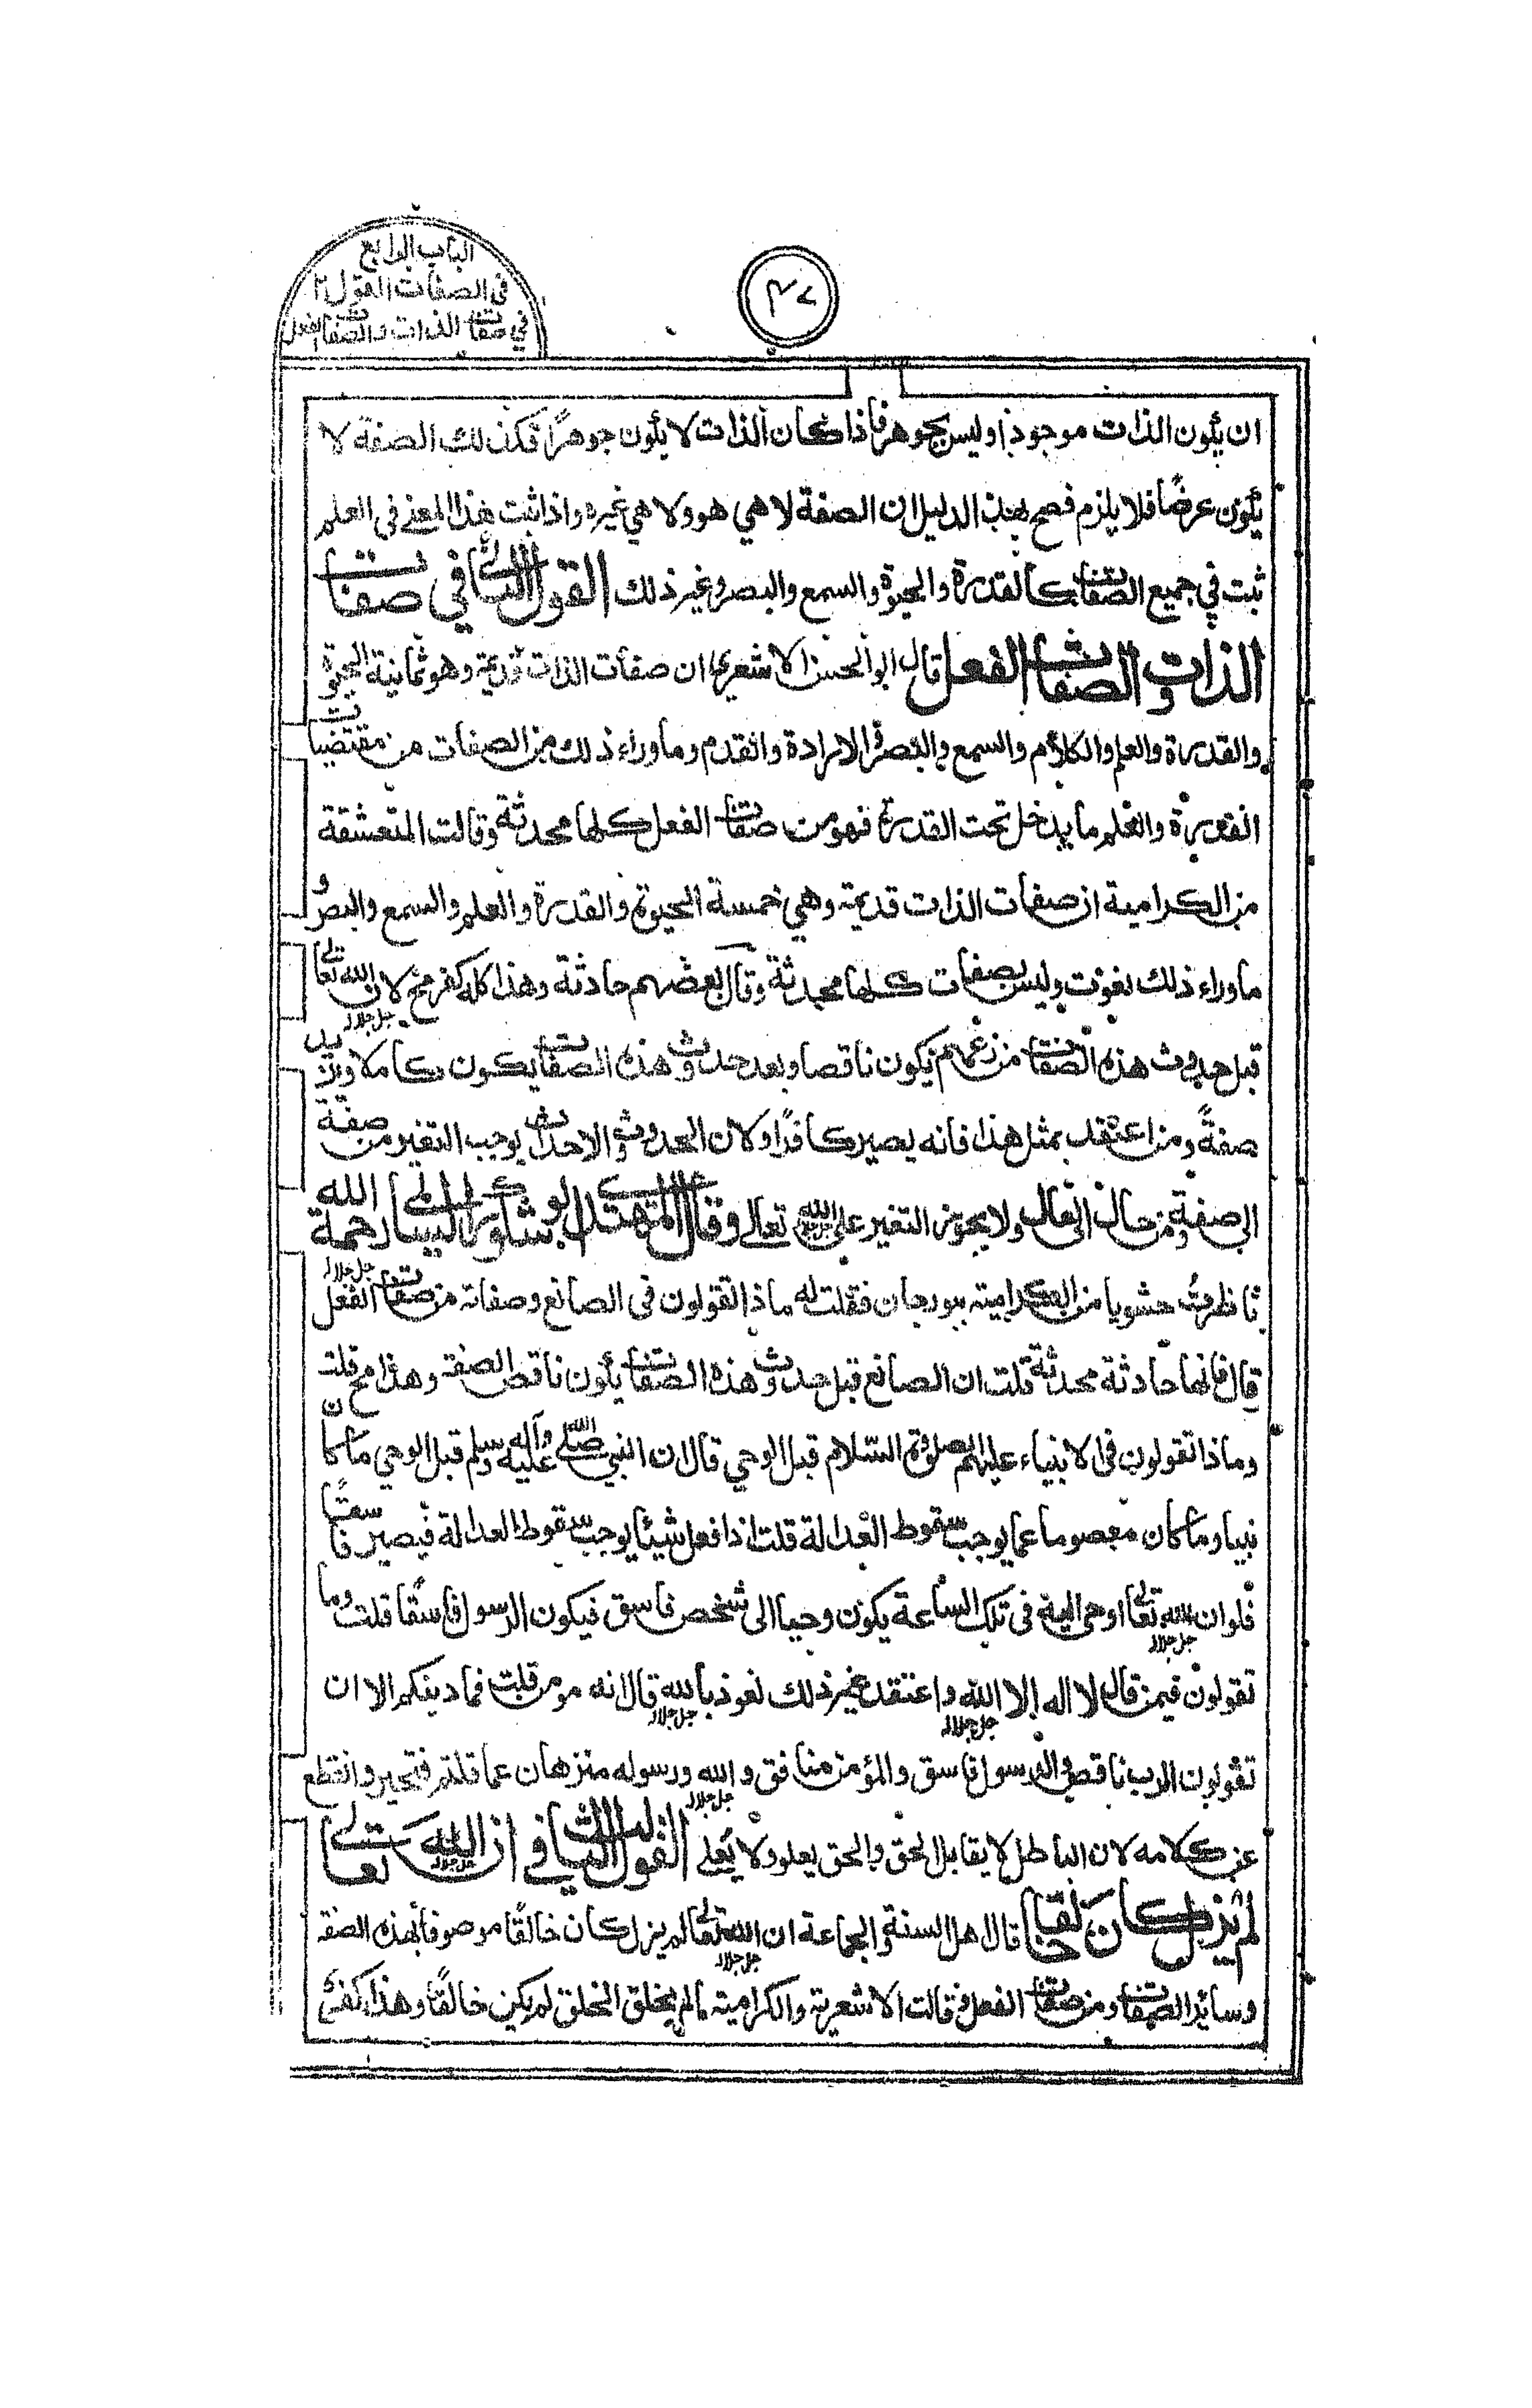 الباب الرابع
في الصفات القول ٢
في صفات الذات والصفات الفعل
ان يكون الذات موجودا وليس بجوهر فاذا كان الذات لا يكون جوهرًا فكذلك الصفة لا
يكون عرضًا فلا يلزم فصح بهذا الدليل ان الصفة لا هي هو ولا هي غيره واذا ثبت هذا المعنى في العلم
ثبت في جميع الصفات كالقدرة والحيوة والسمع والبصر وغير ذلك القول الثاني في صفات
الذات والصفات الفعل قال ابو الحسن الاشعري ان صفات الذات قديمة وهو ثمانية الحيوة
والقدرة والعلم والكلام والسمع والبصر والارادة والقدم وما وراء ذلك من الصفات من مقتضيات
القدرة والعلم ما يدخل تحت القدرة فهو من صفات الفعل كلها محدثة وقالت المتعشقة
من الكرامية ان صفات الذات قديمة وهي خمسة الحيوة والقدرة والعلم والسمع والبصر و
ما وراء ذلك نعوت وليس بصفات كلها محدثة وقال بعضهم حادثة وهذا كله كفر مح لان الله تعالى جل جلاله
قبل حدوث هذه الصفات من زعمهم يكون ناقصا وبعد حدوث هذه الصفات يكون كاملا ويزيد
صفةً ومن اعتقد بمثل هذا فانه يصير كافرًا ولان الحدوث والاحداث يوجب التغير من صفة
الى صفة ومن حال الى حال ولا يجوز التغير على الله جل جلاله تعالى وقال المهتدى ابو شكور السالمي رحمة الله
ناظرتُ حشويا من الكرامية ببورجان فقلت له ماذا تقولون في الصانع وصفاته من صفات الفعل جل جلاله
قال فانها حادثة محدثة قلت ان الصانع قبل حدوث هذه الصفات يكون ناقص الصفة وهذا مح قلت
وماذا تقولون في الانبياء عليهم الصلوة السلام قبل الوحي قال ان النبي صلى الله عليه وآله وسلم قبل الوحي ما كان
نبيا وما كان معصوما عما يوجب سقوط العدالة قلت اذا فعل شيئا يوجب سقوط العدالة فيصير فاسقًا
فلو ان الله تعالى جل جلاله اوحى اليه في تلك الساعة يكون وحيا الى شخص فاسق فيكون الرسول فاسقًا قلت وما
تقولون فيمن قال لا اله الا الله جل جلاله واعتقد غير ذلك نعوذ بالله جل جلاله قال انه مومن قلت فما دينكم الا ان
تقولون الرب ناقص والرسول فاسق والمؤمن منافق والله جل جلاله ورسوله منزهان عما قلتم فتحير وانقطع
عن كلامه لان الباطل لا يقابل الحق والحق يعلو ولا يُعلى القول الثالث في ان الله جل جلاله تعالى
لم يزل كان خالقًا قال اهل السنة والجماعة ان الله تعالى جل جلاله لم يزل كان خالقًا موصوفا بهذه الصفة
وسائر الصفات ومن صفات الفعل وقالت الاشعرية والكرامية ما لم يخلق الخلق لم يكن خالقًا وهذا كفر